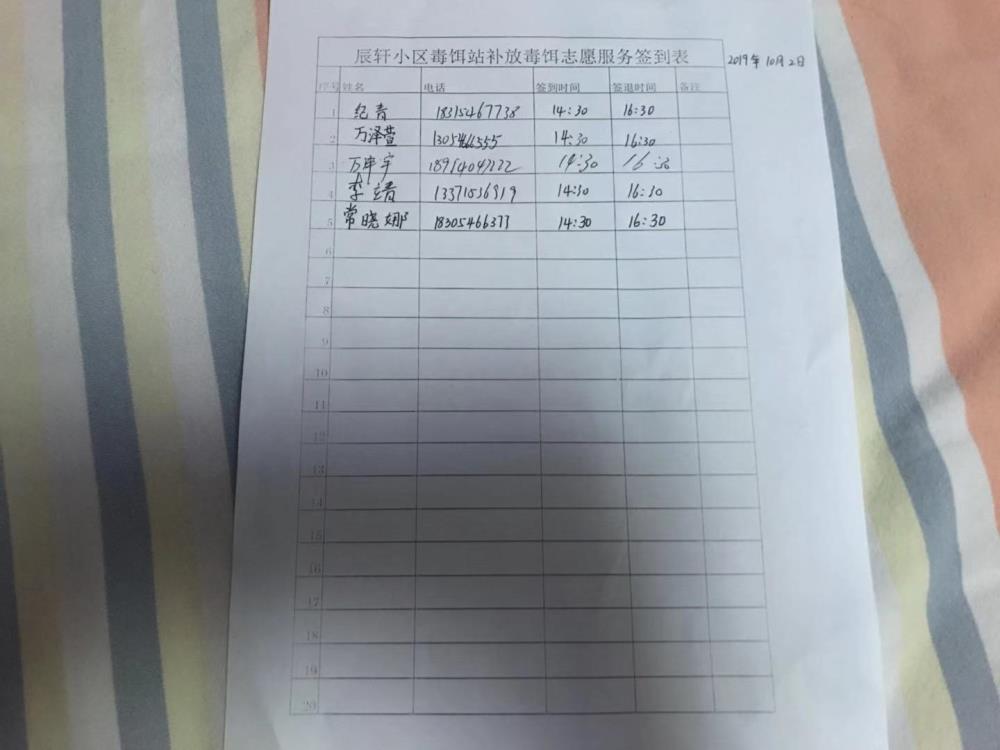 辰轩小区毒饵站补放毒饵志愿服务签到表 2019年10月2日
序号 姓名 电话 签到时间 签退时间 备注
1 纪青 18315467738 14:30 16:30
2 万泽萱 14:30 16:30
3 14:30
4 李靖 14:30 16:30
5 常晓娜 14:30 16:30
6
7
8
9
10
11
12
13
14
15
16
17
18
19
20